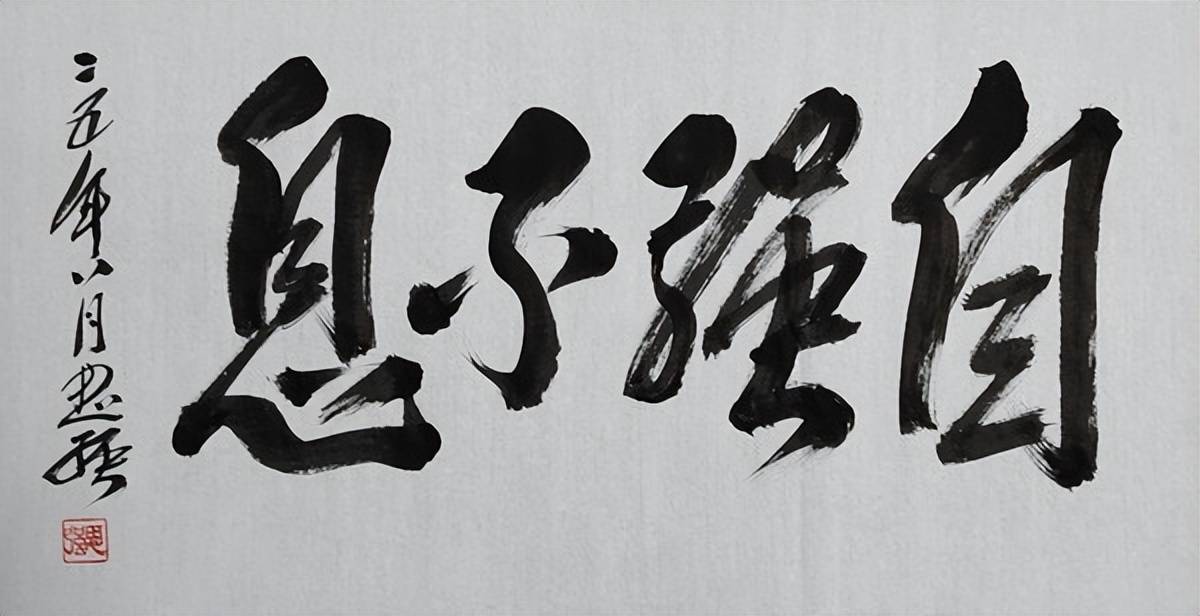 自强不息
二五年八月思强